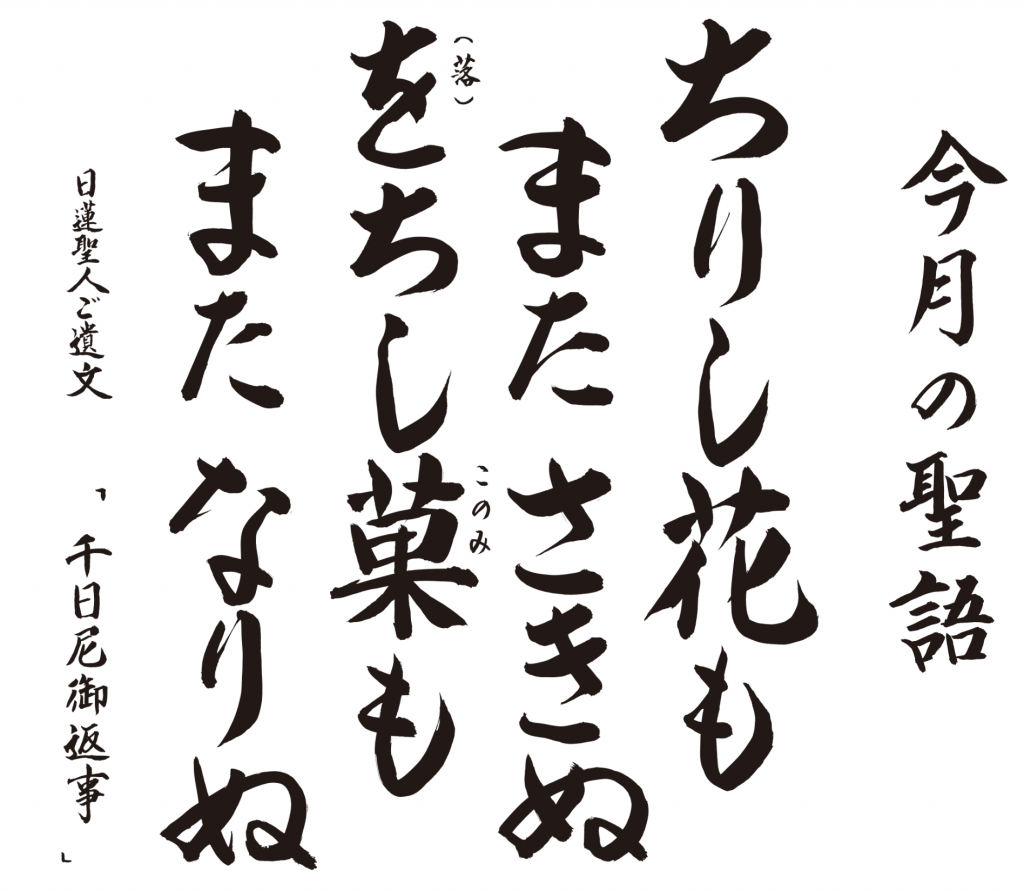 今月の聖語
ちりし花も
またさきぬ
をちし菓も
(落)
このみ
またなりぬ
日蓮聖人ご遺文
「千日尼御返事」